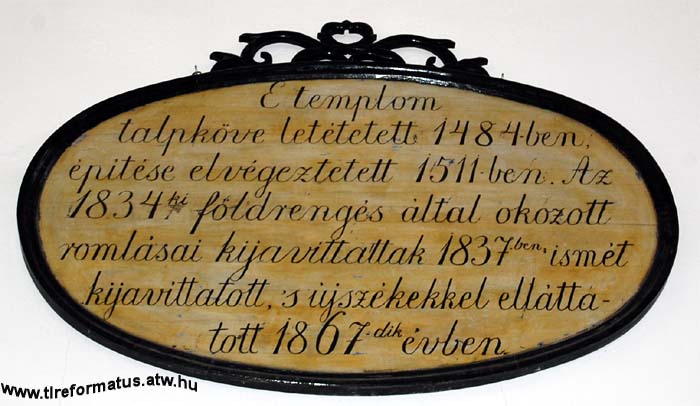 E templom
talpköve letétetett 1484-ben;
épitése elvégeztetett 1511-ben. Az
1834ki földrengés által okozott
romlásai kijavittattak 1837ben, ismét
kijavittatott, 's ujszékekkel elláttа-
tott 1867-dik évben.
www.tlreformatus.atw.hu